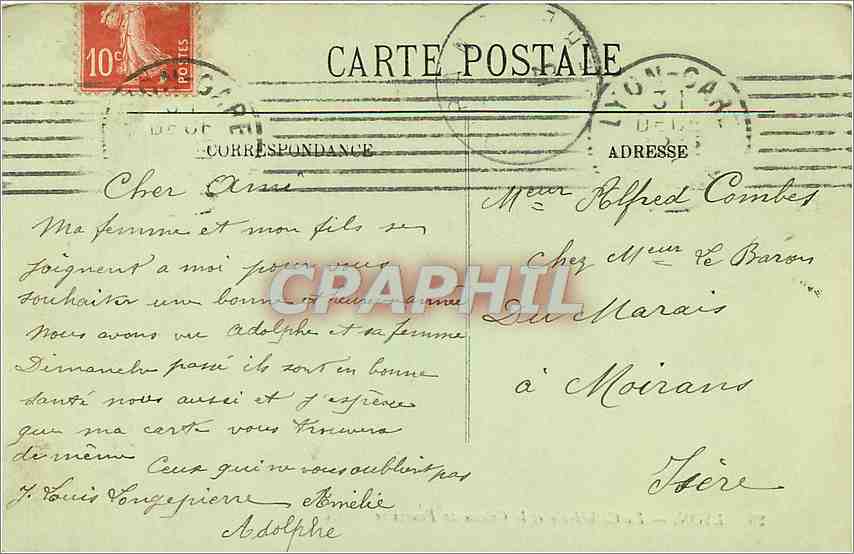 10c
POSTES
CARTE POSTALE
LYON-GARE
31
DEC
LYON-GARE
31
DEC
CORRESPONDANCE
ADRESSE
Cher Ami
Ma femme et mon fils se
joignent a moi pour vous
souhaiter une bonne et heureuse année
nous avons vu Adolphe et sa femme
Dimanche passé ils sont en bonne
santé nous aussi et j'espère
que ma carte vous trouvera
de même
Ceux qui ne vous oublient pas
J. Louis Longepierre Amélie
Adolphe
Meur Alfred Combes
Chez Meur Le Baron
Du Marais
à Moirans
Isère
CPARHIL
LYON